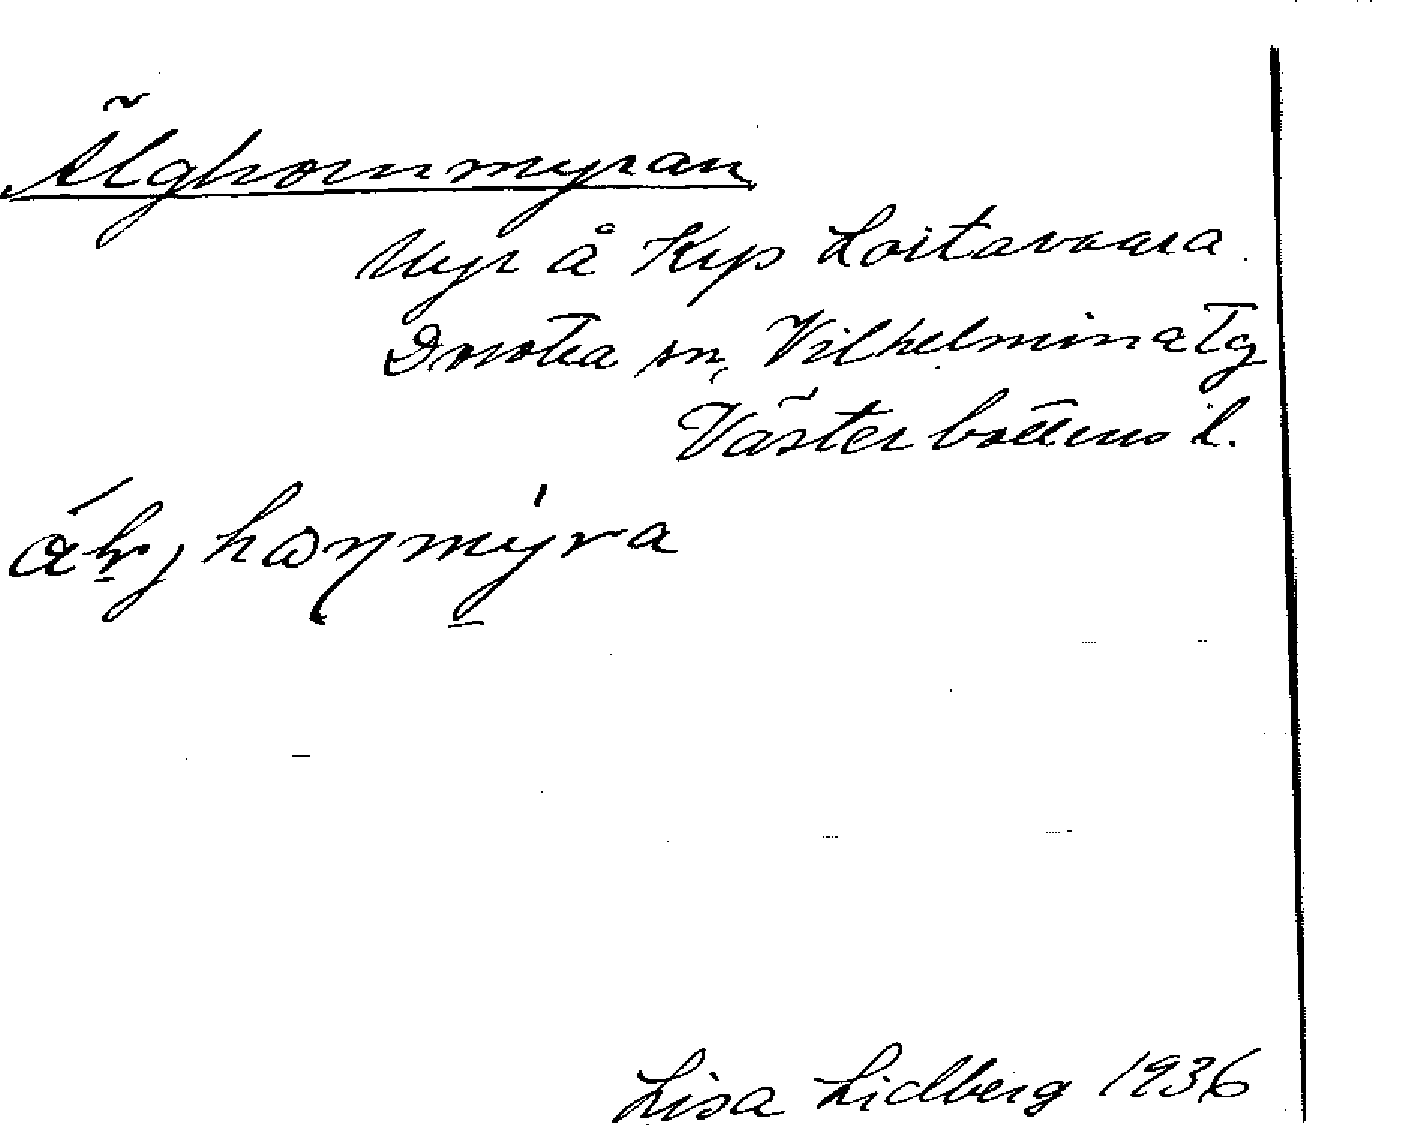 Älghornmyran
Myr å Krp Loitavaara.
Dorotea sn, Vilhelmina tg
Västerbottens l.
Lisa Lidberg 1936